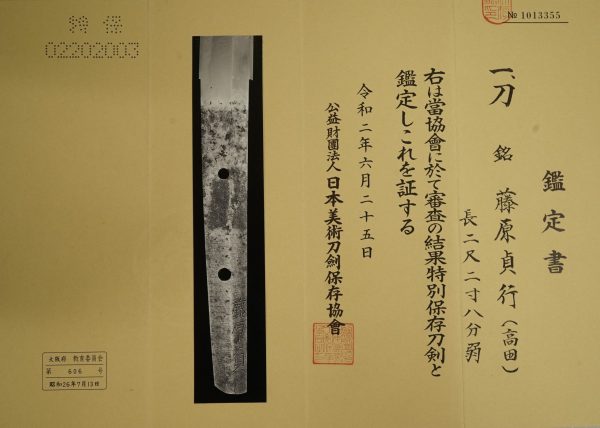 № 1013355
鑑定書
一、刀 銘 藤原貞行(高田)
長二尺二寸八分弱
右は當協會に於て審査の結果特別保存刀剣と
鑑定しこれを証する
令和二年六月二十五日
公益財團法人 日本美術刀劍保存協會
特保
02202003
大阪府 教育委員会
第 606 号
昭和26年7月13日